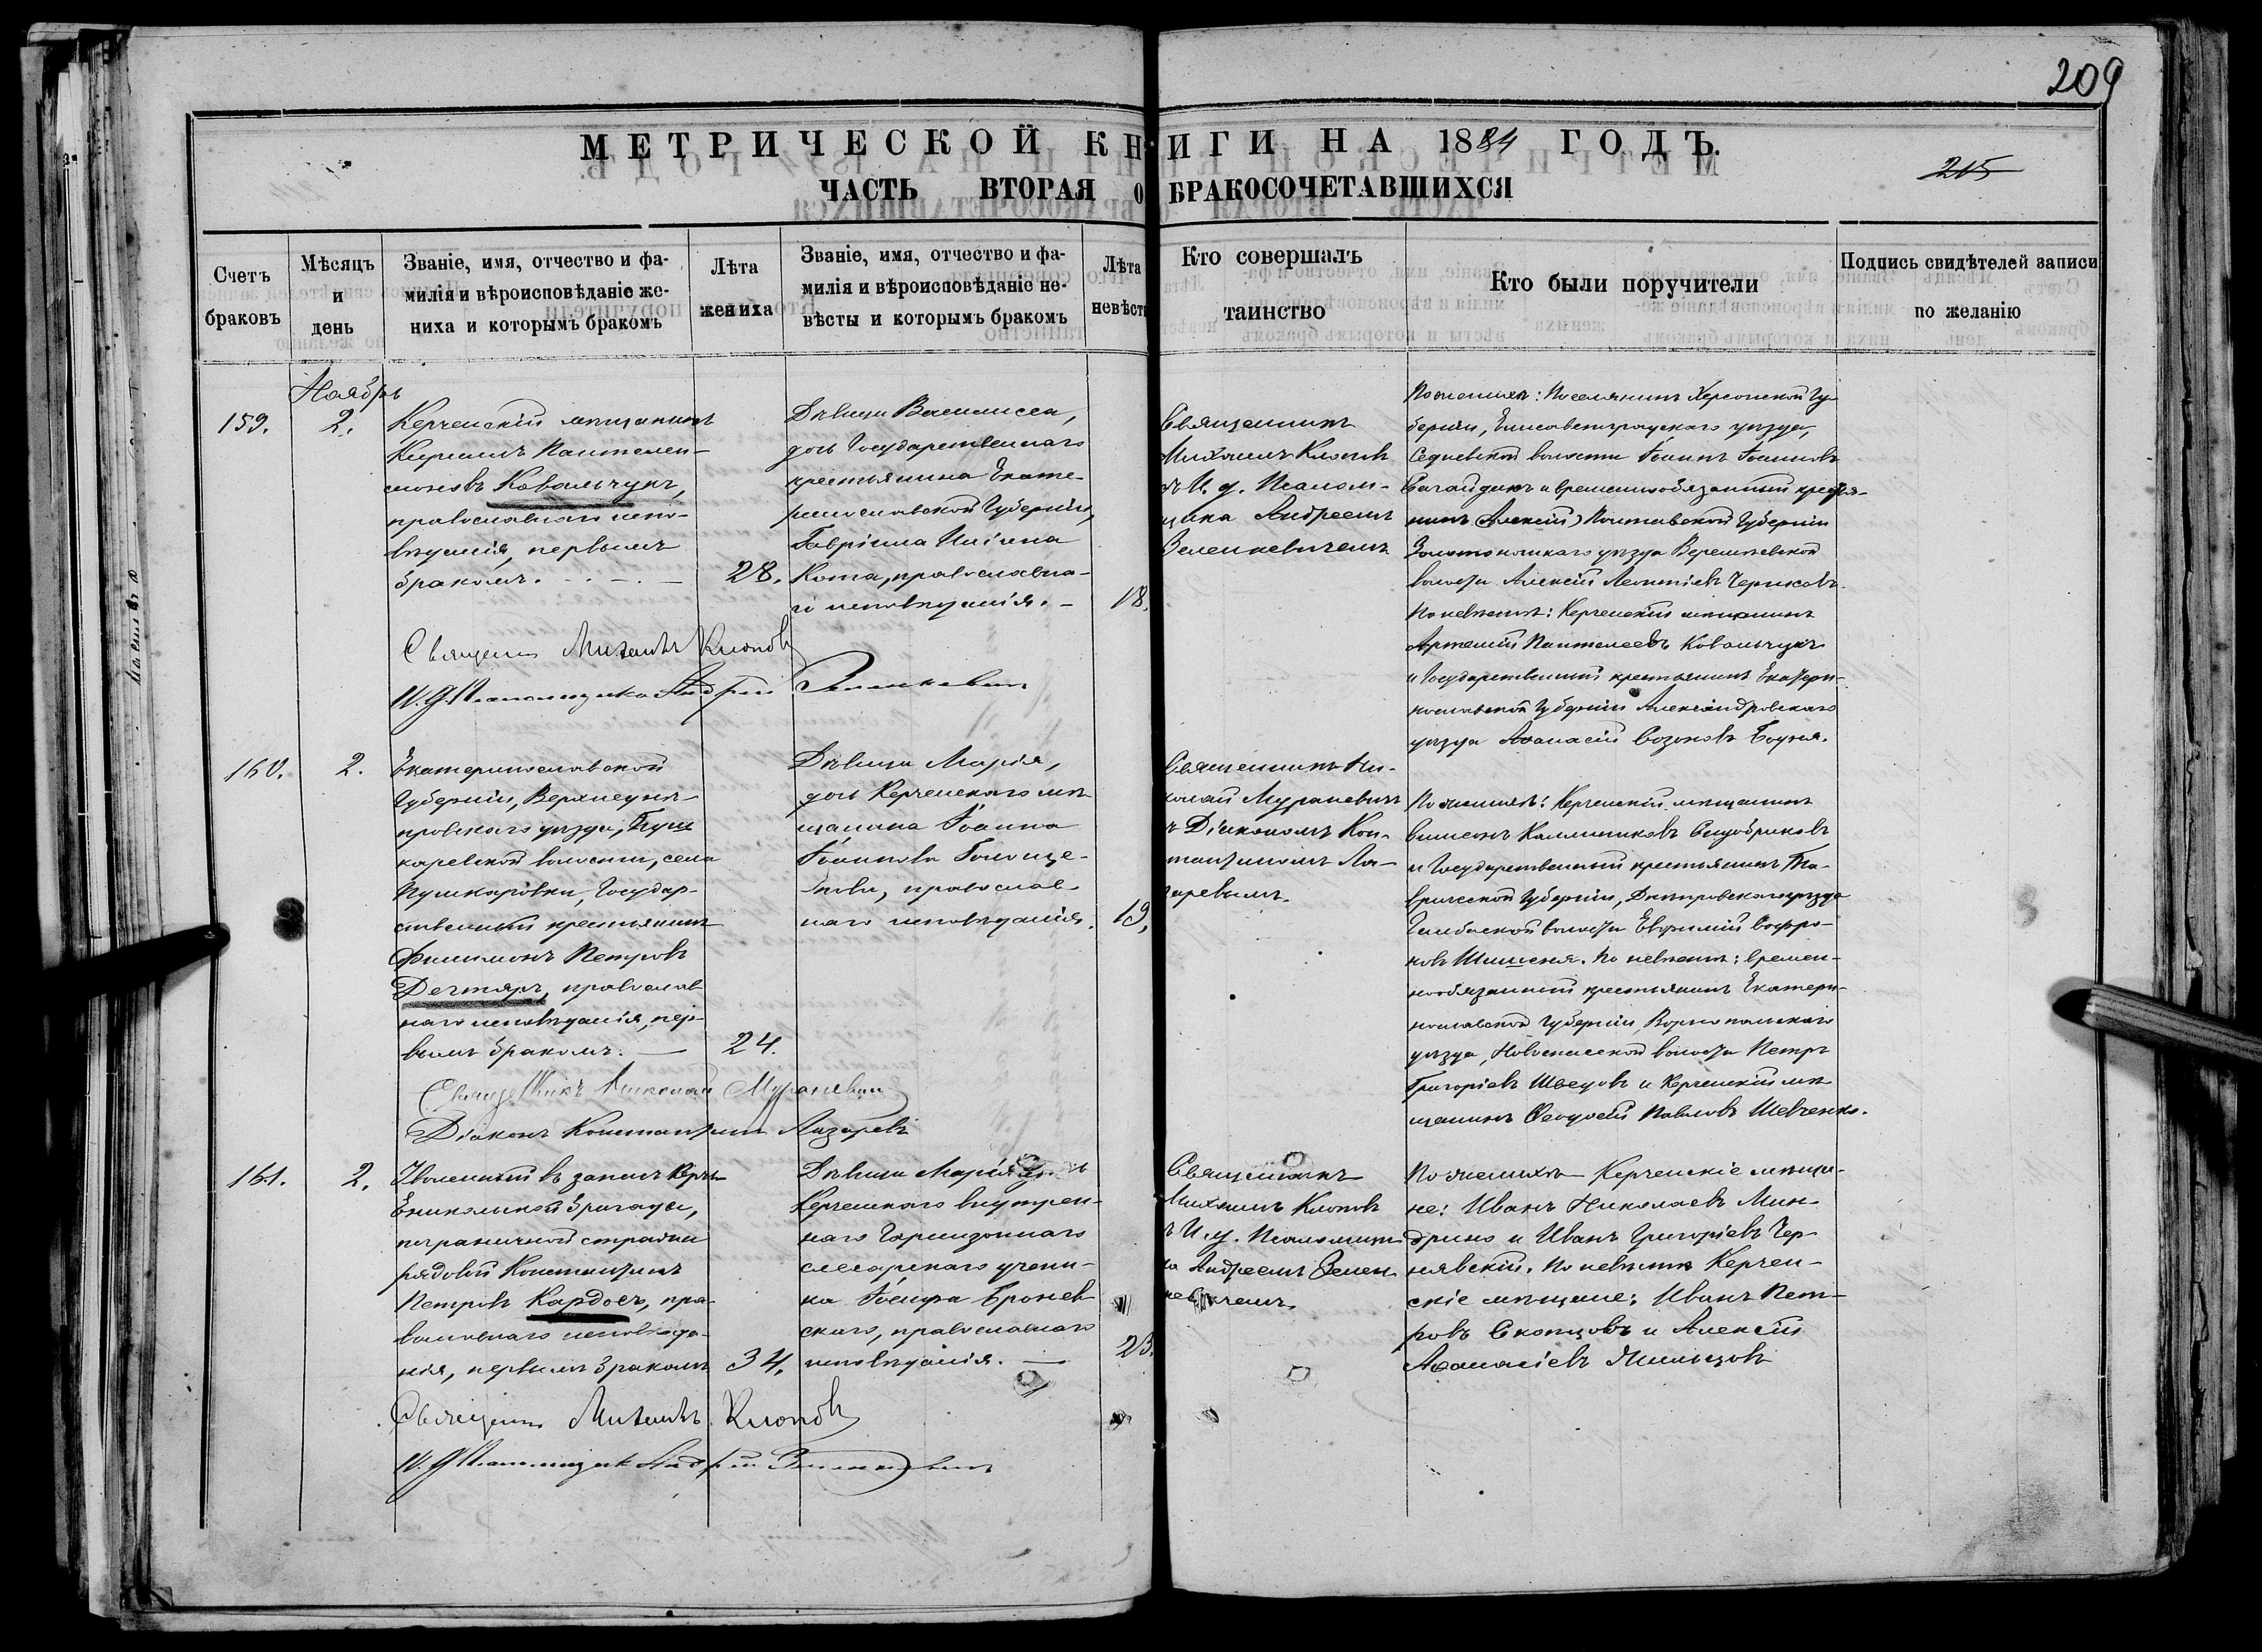 209
МЕТРИЧЕСКОЙ КНИГИ НА 1884 ГОДЪ.
215
ЧАСТЬ ВТОРАЯ О БРАКОСОЧЕТАВШИХСЯ
Счетъ браковъ
Мѣсяцъ и день
Званіе, имя, отчество и фа-
милія и вѣроисповѣданіе же-
ниха и которымъ бракомъ
Лѣта жениха
Званіе, имя, отчество и фа-
милія и вѣроисповѣданіе не-
вѣсты и которымъ бракомъ
Лѣта невѣсты
Кто совершалъ
таинство
Кто были поручители
Подпись свидѣтелей записи
по желанію
Ноябрь
159.
2.
Керченскій мѣщанинъ
Кириллъ Пантелеи-
моновъ Ковальчукъ,
православнаго испо-
вѣданія, первымъ
бракомъ.
28.
Дѣвица Василисса,
дочь Государственнаго
крестьянина Екате-
ринославской Губерніи,
Гавріила Иліина
Кота, православна-
го исповѣданія.
18.
Священникъ
Михаилъ Клоповъ
съ И. д. Псалом-
щика Андреемъ
Зеленкевичемъ
По женихѣ: Поселянинъ Херсонской Гу-
берніи, Елисаветградскаго уѣзда,
волости Іоаннъ Іоанновъ
и временнообязанный крестья-
нинъ (Алексій) Полтавской Губерніи
Золотоношскаго уѣзда
волости Алексій Леонтіевъ Чериковъ.
По невѣстѣ: Керченскій мѣщанинъ
Артемій Пантелеевъ Ковальчукъ
и Государственный крестьянинъ Екатери-
нославской Губерніи Александровскаго
уѣзда Аѳанасій Созоновъ Бодня.
Священникъ Михаилъ Клоповъ
И. д. Псаломщика Андрей Зеленкевичъ
160.
2.
Екатеринославской
Губерніи, Верхнеднѣ-
провскаго уѣзда, Пуш
каревской волости, села
Пушкаровки, Государ-
ственный крестьянинъ
Филимонъ Петровъ
Дегтярь, православ
наго исповѣданія, пер-
вымъ бракомъ.
24.
Дѣвица Марія,
дочь Керченскаго мѣ
щанина Іоанна
Іоаннова
православ-
наго исповѣданія.
19.
Священникъ Ни-
колай Мураневичъ
съ Діакономъ Кон-
стантиномъ Ла-
заревымъ.
По женихѣ: Керченскій мѣщанинъ
Симеонъ Калинниковъ
и Государственный крестьянинъ Та-
врической Губерніи, Днѣпровскаго уѣзда
волости Евфимій Софро-
новъ Шишеня. По невѣстѣ: времен-
нообязанный крестьянинъ Екатери-
нославской Губерніи,
уѣзда, Новоспасской волости Петръ
Григоріевъ Шведовъ и Керченскій мѣ
щанинъ Ѳеодосій Павловъ Шевченко.
Священникъ Николай Мураневичъ
Діаконъ Константинъ Лазаревъ
161.
2.
Уволенный въ запасъ Керчь-
Еникольской бригады,
пограничной стражи
рядовой Константинъ
Петровъ Кардось, пра-
вославнаго исповѣда-
нія, первымъ бракомъ
34.
Дѣвица Марія дочь
Керченскаго внутрен-
наго Гарнизоннаго
слесарскаго учени-
ка Іосифа Бронев
скаго, православнаго
исповѣданія.
23.
Священникъ
Михаилъ Клоповъ
съ И. д. Псаломщи
ка Андреемъ Зелен
кевичемъ
По женихѣ Керченскіе мѣща-
не: Иванъ Николаевъ Мин-
дрино и Иванъ Григоріевъ Чер-
нявскій. По невѣстѣ Керчен-
скіе мѣщане: Иванъ Пет-
ровъ Скопцовъ и Алексій
Аѳанасіевъ
Священникъ Михаилъ Клоповъ
И. д. Псаломщика Андрей Зеленкевичъ